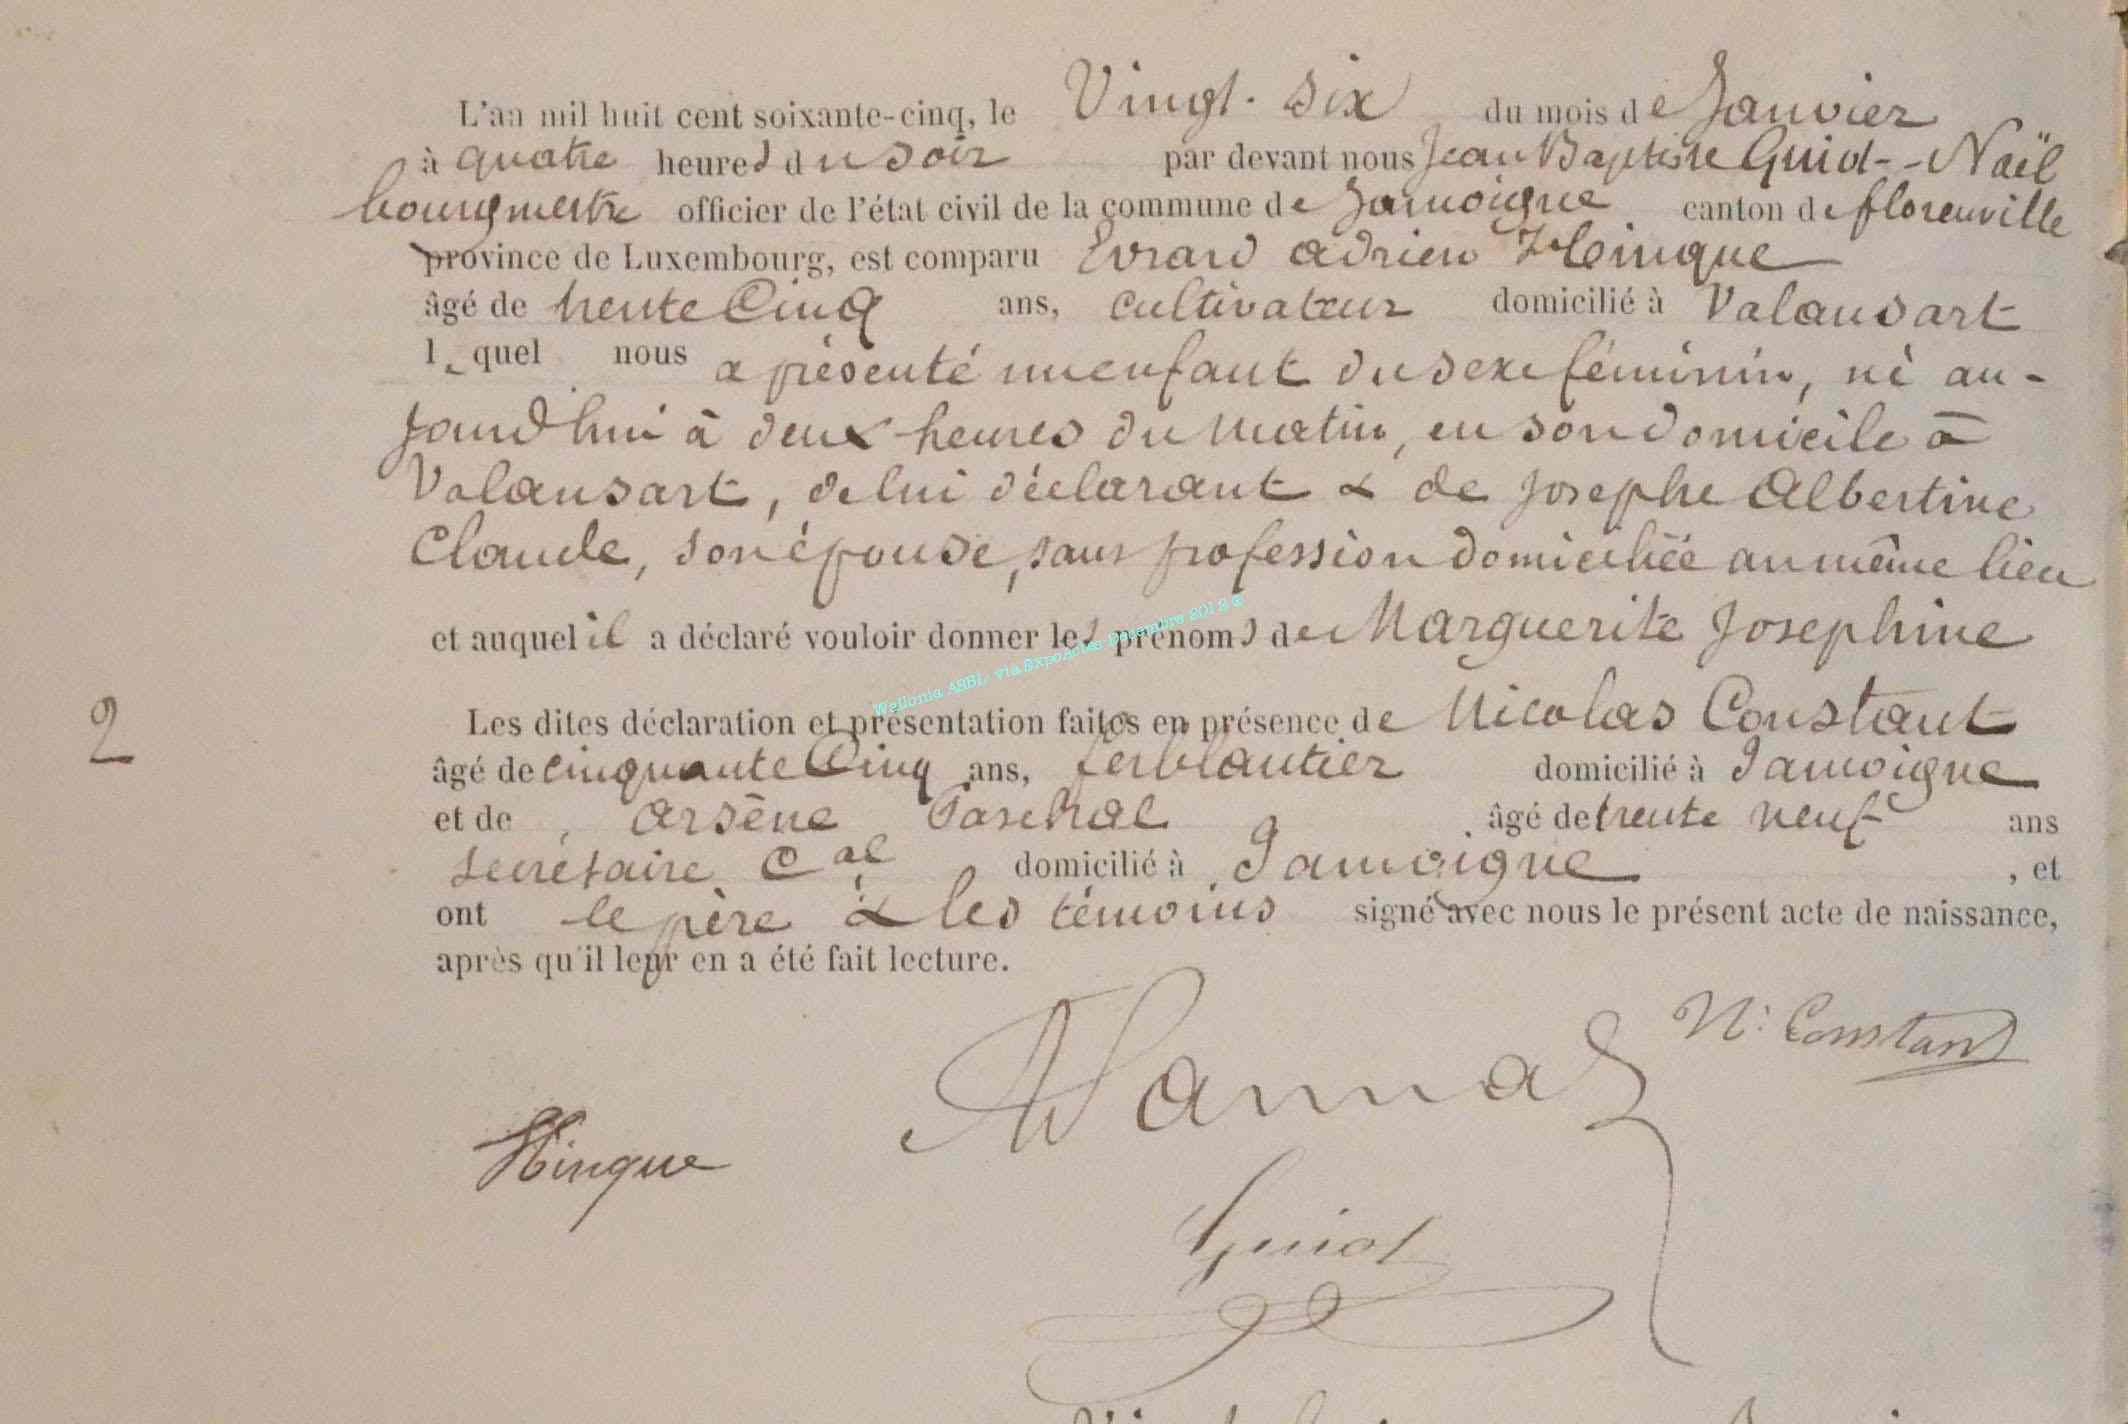 L'an mil huit cent soixante-cinq, le Vingt-six du mois de Janvier
à quatre heures du soir par devant nous Jean Baptiste Guiot--Naël
bourgmestre officier de l'état civil de la commune de Jamoigne canton de florenville
province de Luxembourg, est comparu Evrard adrien Hinque
âgé de trente Cinq ans, cultivateur domicilié à Valansart
lequel nous a présenté un enfant du sexe féminin, né au-
jourd'hui à deux heures du matin, en son domicile à
Valansart, de lui déclarant & de Josephe Albertine
Claude, son épouse, sans profession domiciliée au même lieu
et auquel il a déclaré vouloir donner les prénoms de Marguerite Josephine
2
Les dites déclaration et présentation faites en présence de Nicolas Constant
âgé de cinquante Cinq ans, ferblantier domicilié à Jamoigne
et de Arsène Paschal âgé de trente neuf ans
secrétaire Cal domicilié à Jamoigne, et
ont le père & les témoins signé avec nous le présent acte de naissance,
après qu'il leur en a été fait lecture.
Wallonia ASBL via Expoactes Décembre 2018 ©
N: Constant
Hinque
Guiot